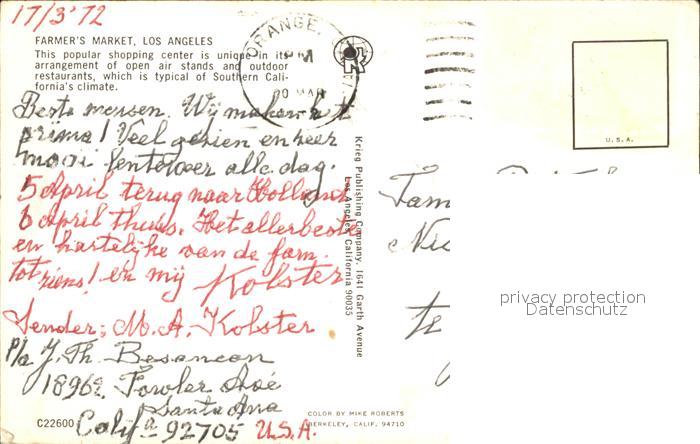 17/3'72
FARMER'S MARKET, LOS ANGELES
This popular shopping center is unique in its
arrangement of open air stands and outdoor
restaurants, which is typical of Southern Cali-
fornia's climate.
ORANGE,
PM
MAR
U.S.A.
Beste mensen. Wij maken het
prima! Veel gezien en weer
mooi lenteweer alle dag.
5 April terug naar Holland
6 April thuis. Het allerbeste
en hartelijke van de fam.
tot ziens! en mij Kolster
Sender; M. A. Kolster
P/a J. Th. Besancon
18962 Fowler Avé
Santa Ana
Califª 92705 U.S.A.
C22600
Krieg Publishing Company, 1641 Garth Avenue
Los Angeles, California 90035
COLOR BY MIKE ROBERTS
BERKELEY, CALIF. 94710
Fam
te
privacy protection
Datenschutz